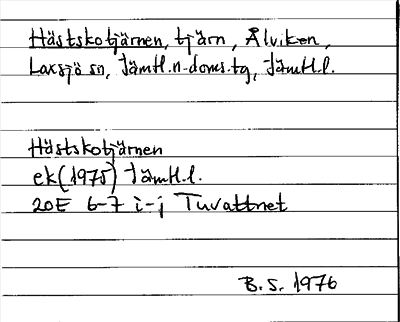 Hästskotjärnen, tjärn, Ålviken,
Laxsjö sn, Jämtl.n.doms.tg, Jämtl.l.
Hästskotjärnen
ek (1975) Jämtl.l.
20E 6-7 i-j Tuvattnet
B.S. 1976